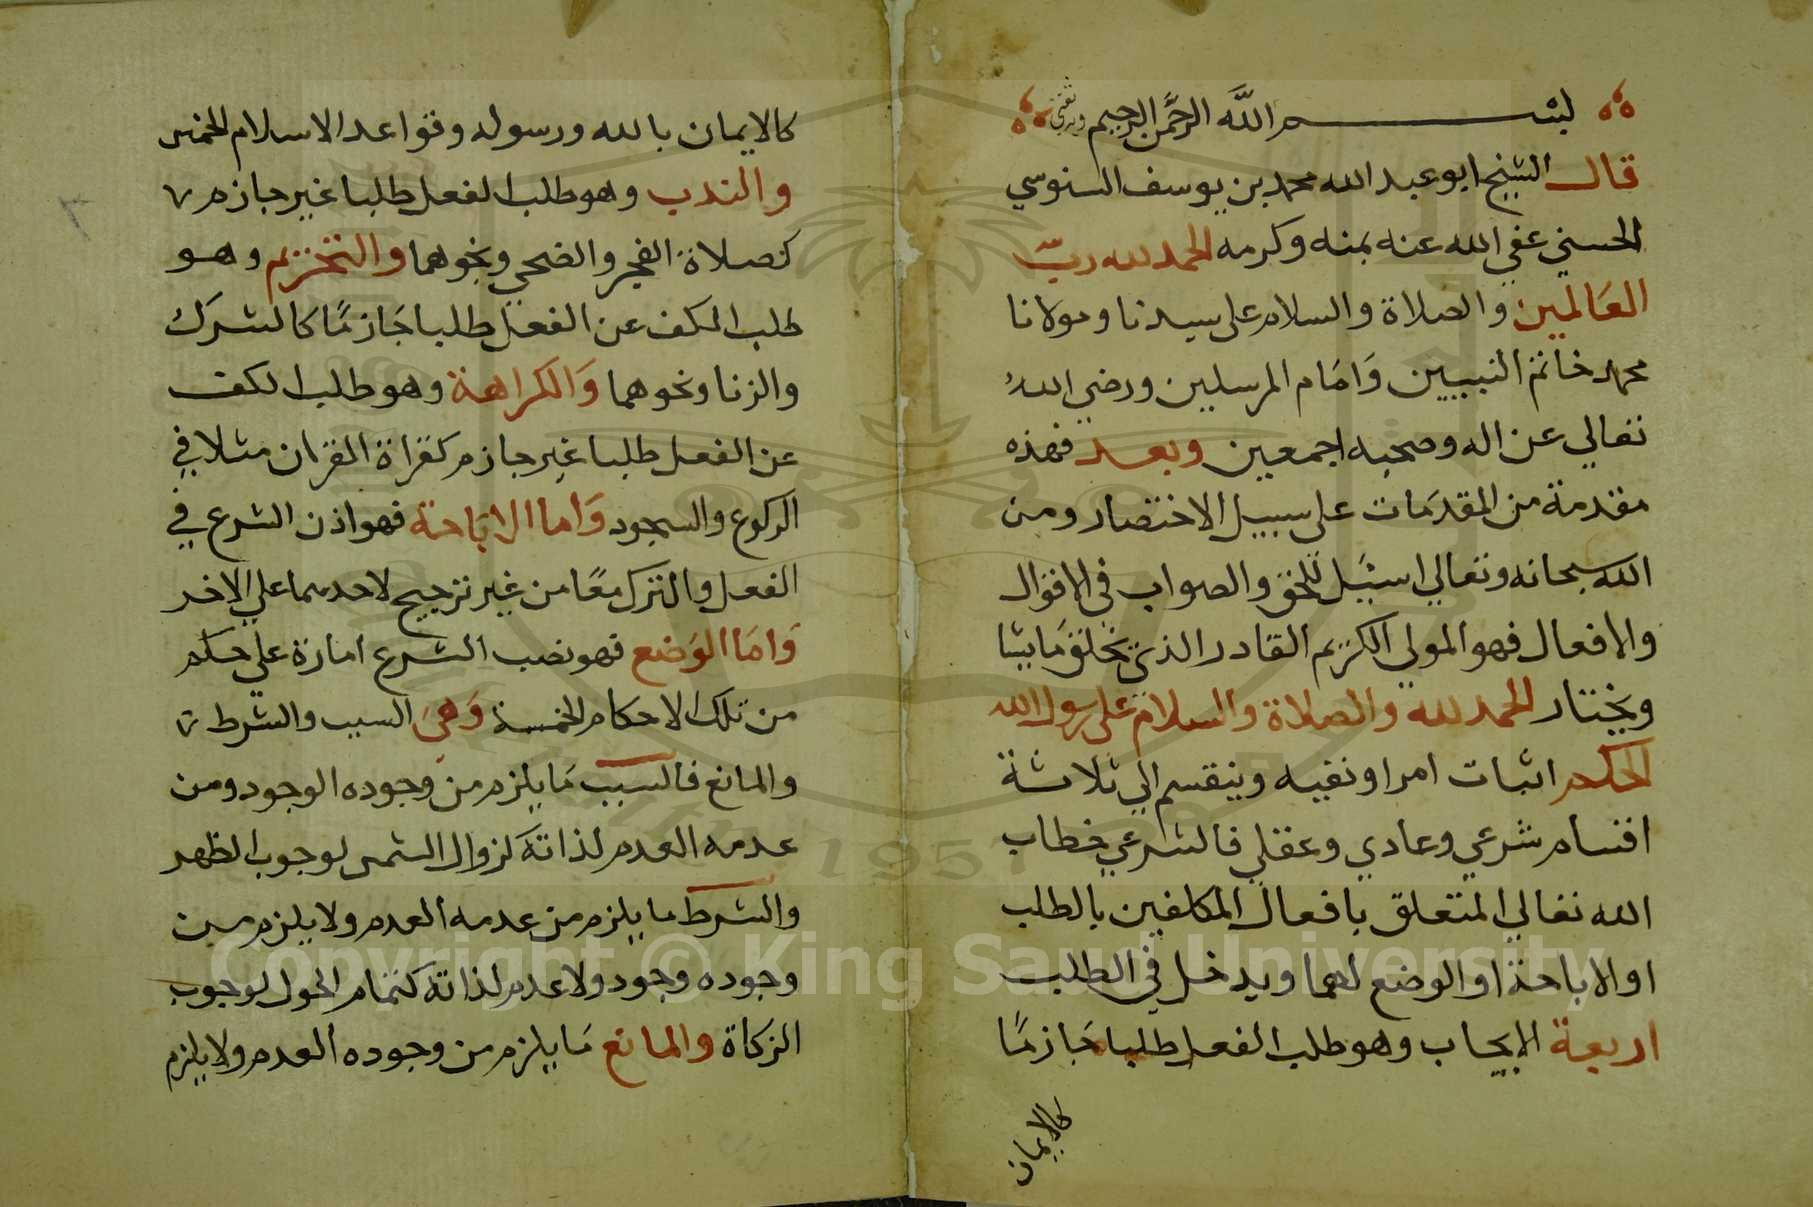 بسم الله الرحمن الرحيم وبه ثقتي
قال الشيخ ابو عبد الله محمد بن يوسف السنوسي
الحسني عفي الله عنه بمنه وكرمه الحمد لله ربّ
العَالمين والصلاة والسلام على سيدنا ومولانا
محمد خاتم النبيين وَامَام المرسلين ورضي اللهُ
تعالي عن اله وصحبه اجمعين وبعد فهذه
مقدمة من المقدمَات على سبيل الاختصار ومن
الله سبحانه وتعالي اسئل للحق والصواب في الاقوال
والافعال فهو المولي الكريم القادر الذي يخلق مَا يشا
ويختار الحمد لله والصلاة والسلام على رسول الله
الحكم اثبات امر او نفيه وينقسم الي ثلاثة
اقسام شرعي وعادي وعقلي فالشرعي خطاب
الله تعالي المتعلق بافعال المكلفين بالطلب
او الاباحة او الوضع لهما ويدخل في الطلب
اربعة الايجاب وهو طلب الفعل طلبا جَازمًا
كالايمان
كالايمان بالله ورسوله وقواعد الاسلام الخمس
والندب وهو طلب الفعل طلبا غير جازم
كصلاة الفجر والضحي ونحوهما والتحريم وهو
طلب الكف عن الفعل طلبا جَازمًا كالشرك
والزنا ونحوهما وَالكراهة وهو طلب الكف
عن الفعل طلبا غير جازم كقراة القران مثلا في
الركوع والسجود وَاما الابَاحة فهو اذن الشرع في
الفعل والترك معًا من غير ترجيح لاحدهما علي الاخر
وَامَا الوَضع فهو نصب الشرع امارة علي حكم
من تلك الاحكام الخمسة وَهيَ السبب والشرط
والمانع فالسبب مَا يلزم من وجوده الوجود ومن
عدمه العدم لذاته كزوال الشمس لوجوب الظهر
والشرط ما يلزم من عدمه العدم ولا يلزم من
وجوده وجود ولا عدم لذاته كتمام الحول لوجوب
الزكاة والمانع مَا يلزم من وجوده العدم ولا يلزم
Copyright © King Saud University
1957